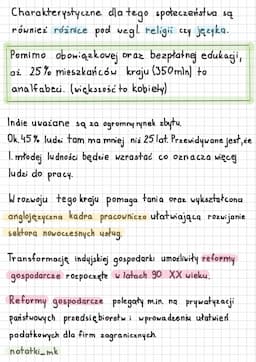 Charakterystyczne dla tego społeczeństwa są
również różnice pod wzgl. religii czy języka.
Pomimo obowiązkowej oraz bezpłatnej edukacji,
aż 25% mieszkańców kraju (350mln) to
analfabeci. (większość to kobiety)
Indie uważane są za ogromny rynek zbytu.
Ok. 45% ludzi tam ma mniej niż 25 lat. Przewidywane jest, że
l. młodej ludności będzie wzrastać co oznacza więcej
ludzi do pracy.
W rozwoju tego kraju pomaga tania oraz wykształcona
anglojęzyczna kadra pracownicza ułatwiająca rozwijanie
sektora nowoczesnych usług.
Transformację indyjskiej gospodarki umożliwiły reformy
gospodarcze rozpoczęte w latach 90 XX wieku.
Reformy gospodarcze polegały m.in. na prywatyzacji
państwowych przedsiębiorstw i wprowadzeniu ułatwień
podatkowych dla firm zagranicznych.
notatki_mk